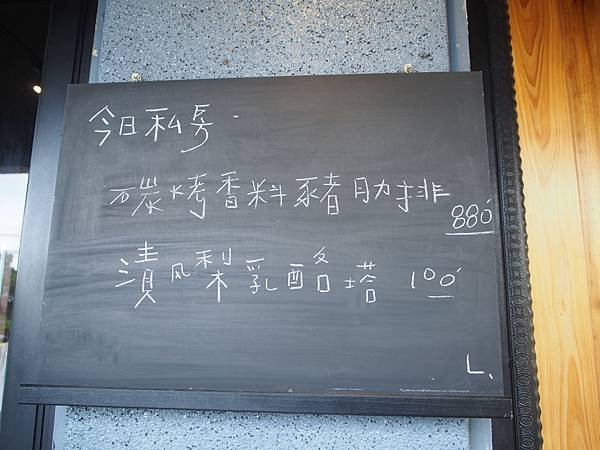 今日私房.
碳烤香料豬肋排 880
漬風梨乳酪塔 100
L.